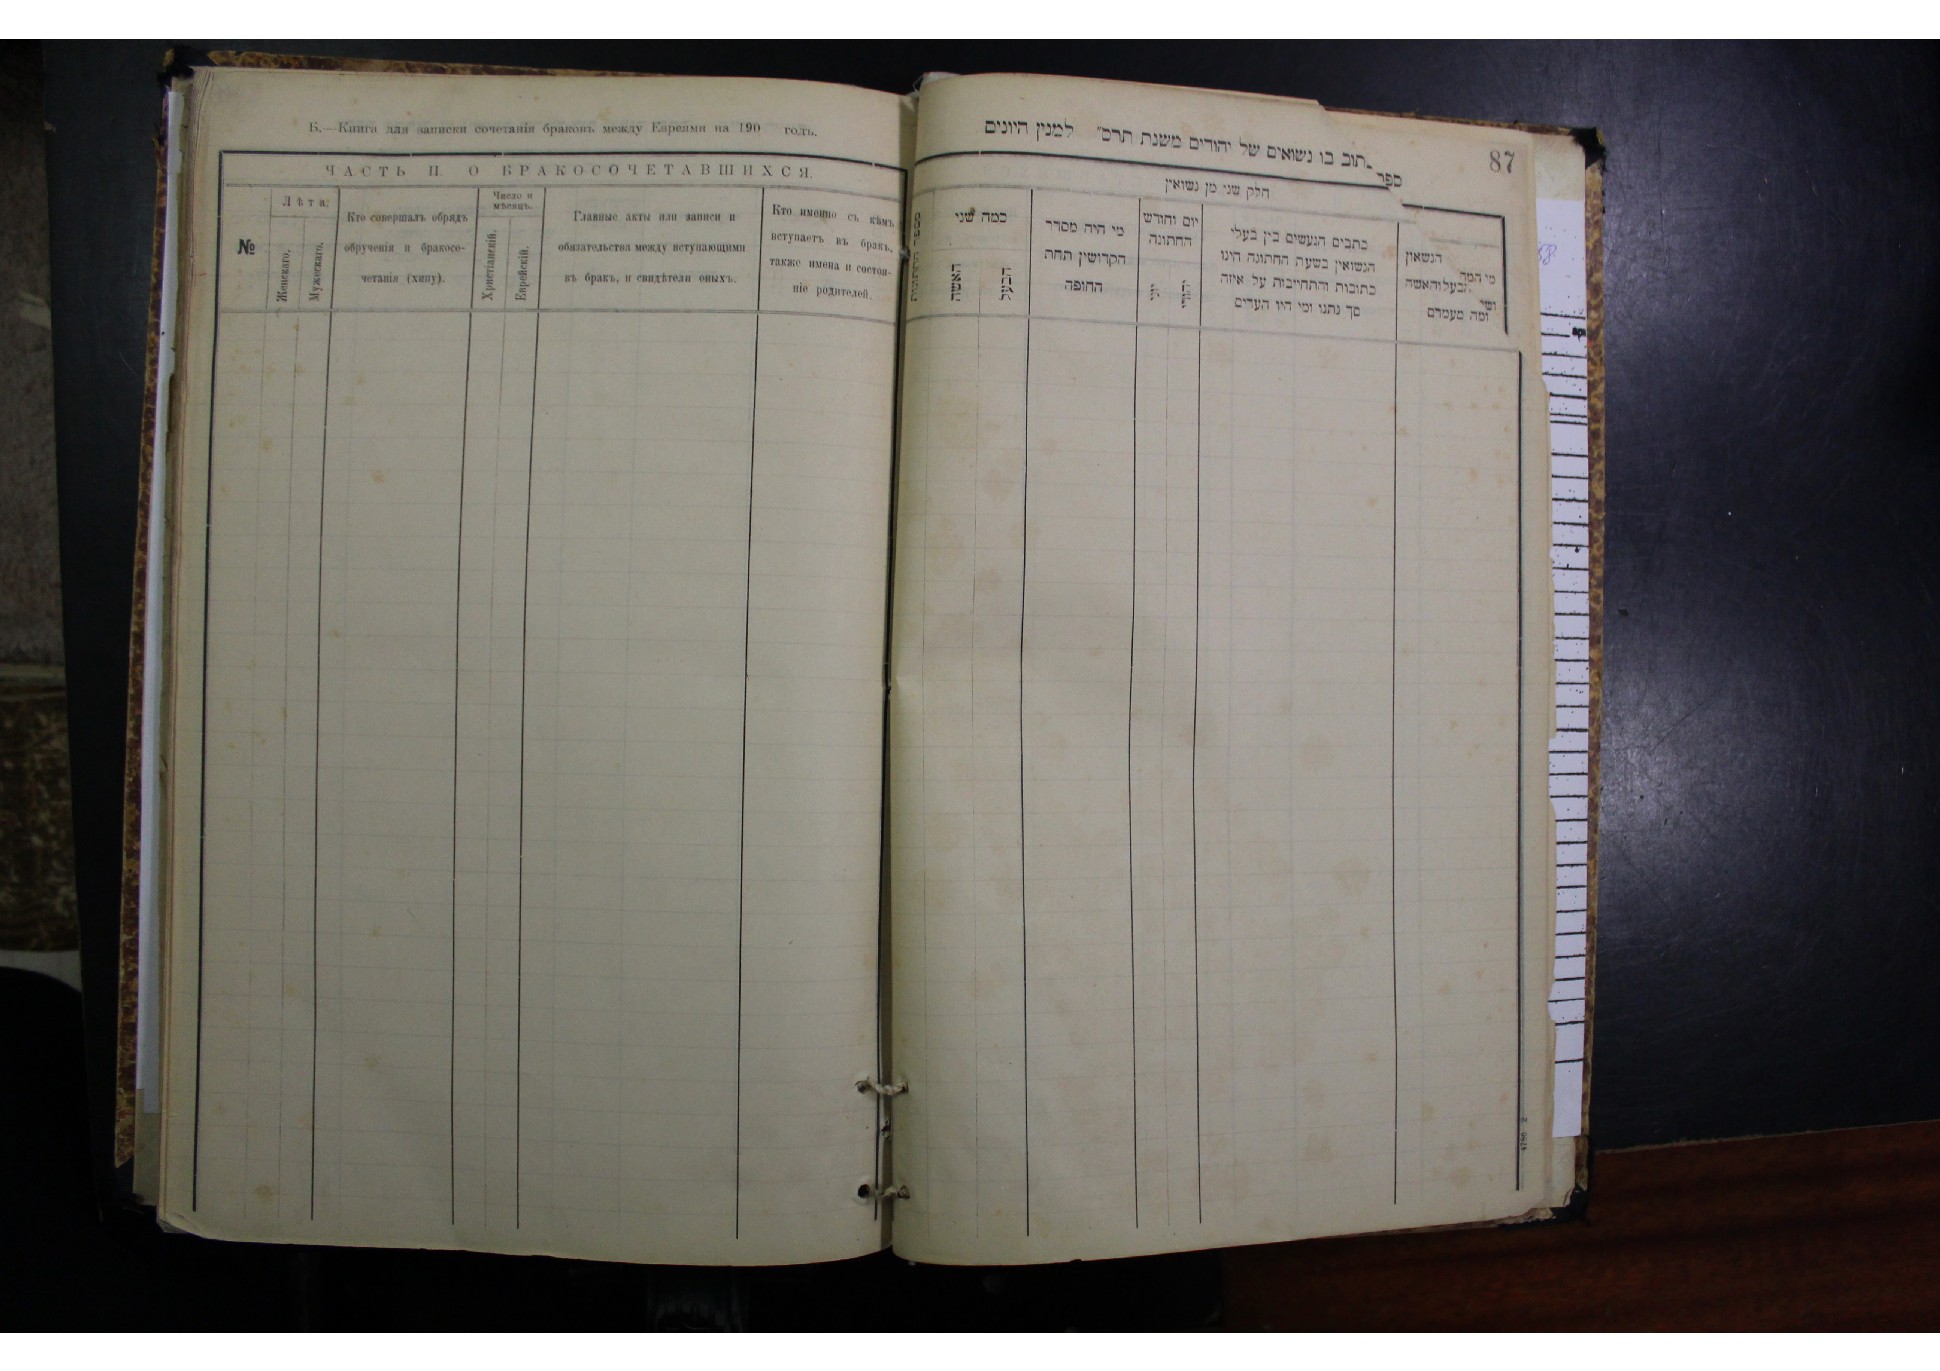 Б.—Книга для записки сочетанія браковъ между Евреями на 190 годъ.
ЧАСТЬ II. О БРАКОСОЧЕТАВШИХСЯ.
№
Лѣта:
Женскаго.
Мужескаго.
Кто совершалъ обрядъ
обрученія и бракосо-
четанія (хипу).
Число и
мѣсяцъ.
Христіанскій.
Еврейскій.
Главные акты или записи и
обязательства между вступающими
въ бракъ, и свидѣтели оныхъ.
Кто именно съ кѣмъ
вступаетъ въ бракъ,
также имена и состоя-
ніе родителей.
87
ספר
בו נשואים של יהודים משנת תרס״ למנין היונים
חלק שני מן נשואין
כמה שני
האשה
הבעל
מי היה מסדר
הקדושין תחת
החופה
יום וחודש
החתונה
יוני
יהודי
כתבים הנעשים בין בעלי
הנשואין בשעת החתונה היינו
כתובות והתחייבות על איזה
סך נתנו ומי היו העדים
הנשאון
מי המה
הבעל והאשה
ומה מעמדם
4786 2